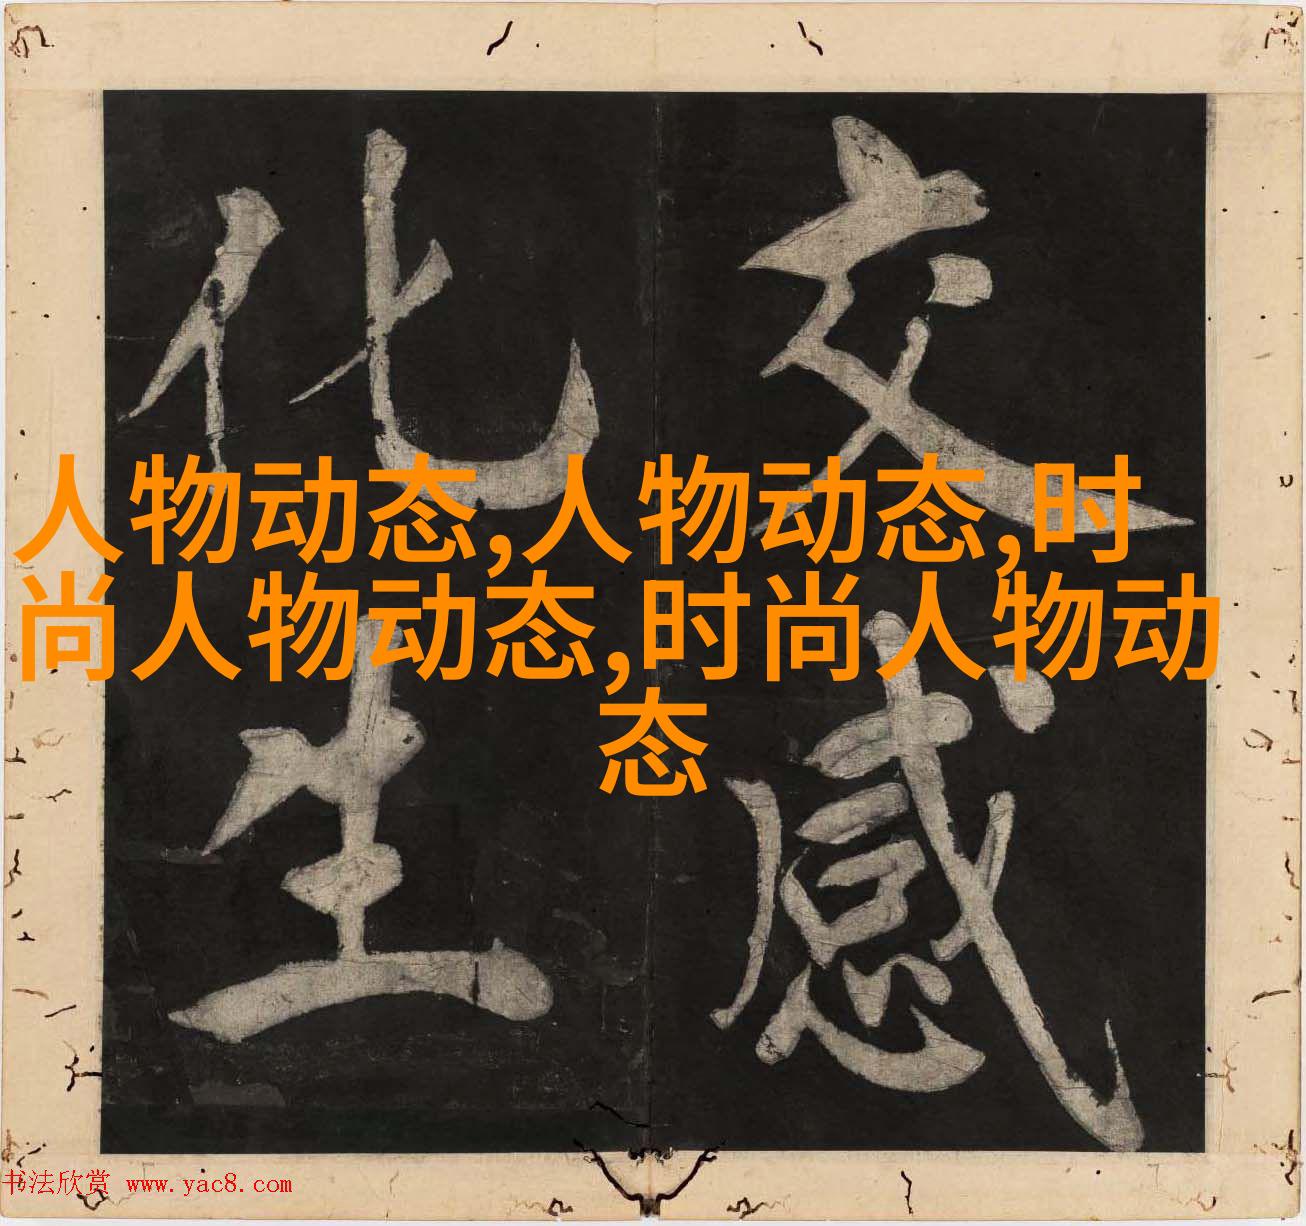 交感
化生
人物动态,人物动态,时
尚人物动态,时尚人物动
态
书法欣赏 www.yac8.com